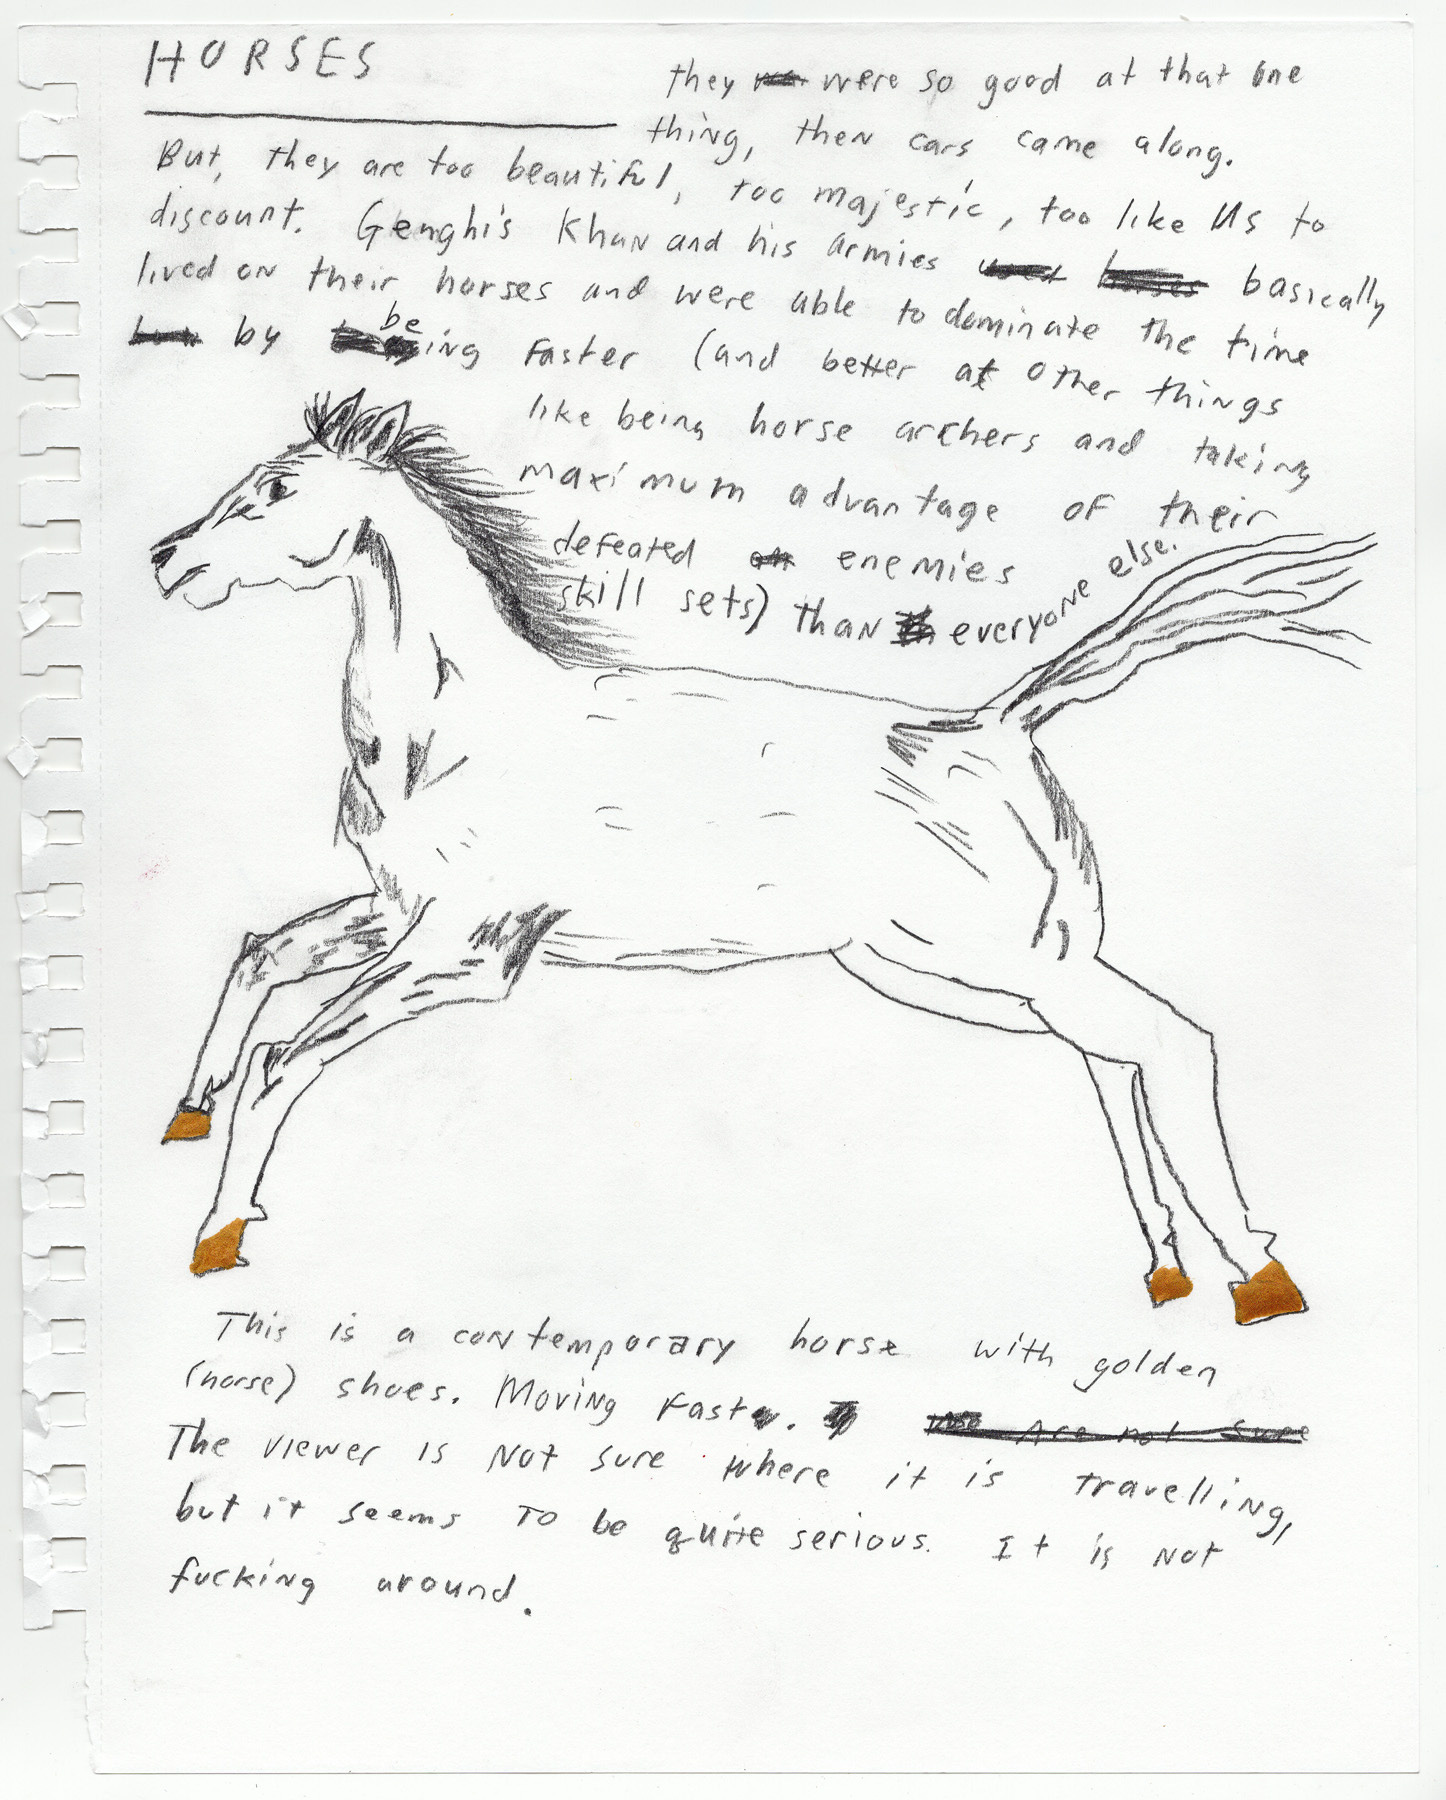 HORSES
they were so good at that one
thing, then cars came along.
But, they are too beautiful, too majestic, too like us to
discount. Genghi's Khan and his armies basically
lived on their horses and were able to dominate the time
by being faster (and better at other things
like being horse archers and taking
maximum advantage of their
defeated enemies
skill sets) than everyone else.
This is a contemporary horse with golden
(horse) shoes. Moving fast.
The viewer is not sure where it is travelling,
but it seems to be quite serious. It is not
fucking around.